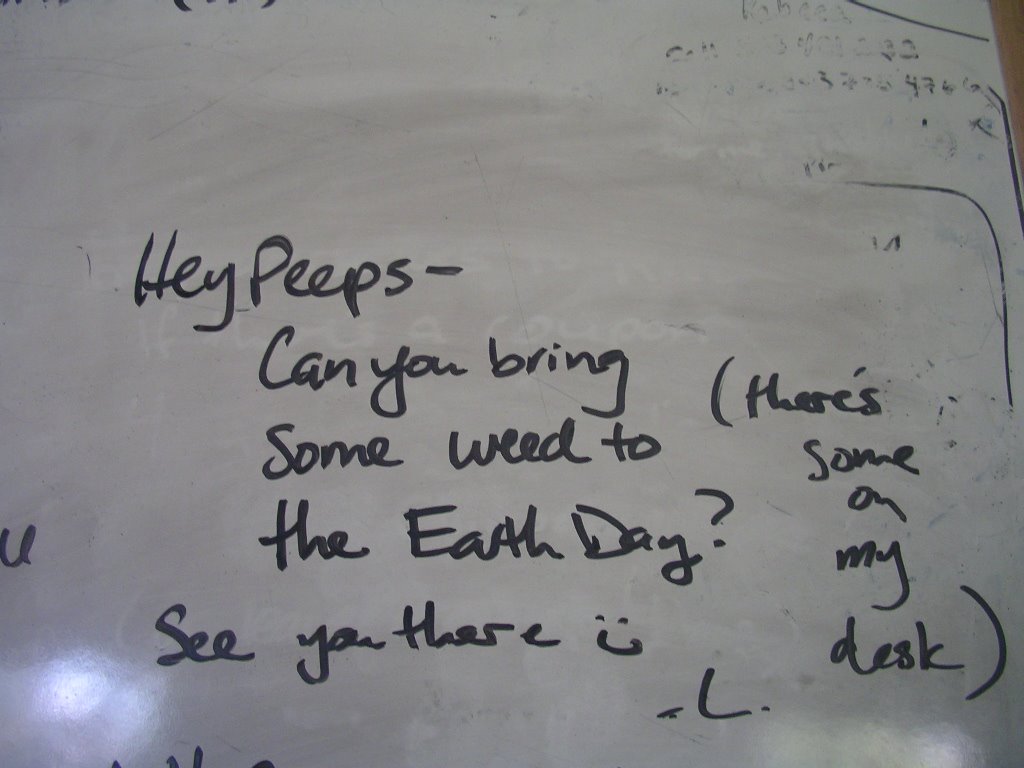 Hey Peeps-
Can you bring
some weed to
the Earth Day?
(there's
some
on
my
desk)
See you there
-L.